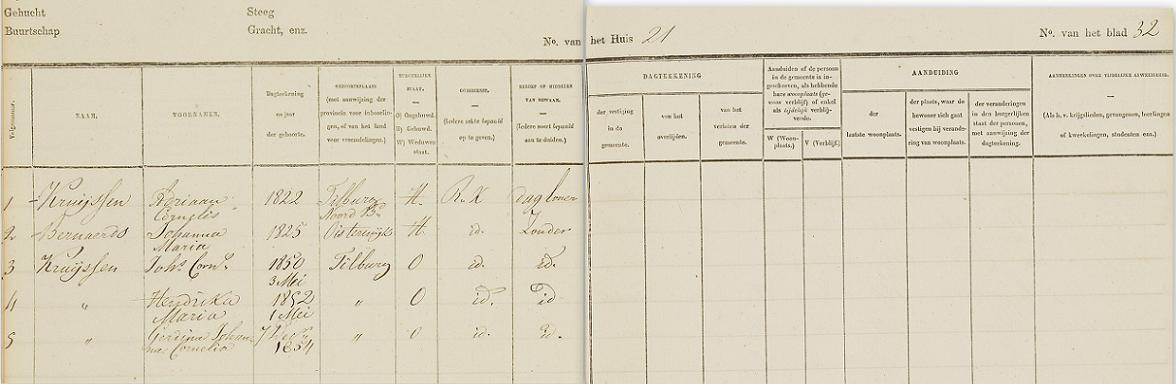 Gehucht Steeg
Buurtschap Gracht, enz.
No. van het Huis 21 No. van het blad 32
Volgnummer.
NAAM.
VOORNAMEN.
Dagteekening
en jaar
der geboorte.
GEBOORTEPLAATS
(met aanwijzing der
provincie voor inboorlin-
gen, of van het land
voor vreemdelingen.)
BURGERLIJKE
STAAT.
O) Ongehuwd.
H) Gehuwd.
W) Weduwen-
staat.
GODSDIENST.
(Iedere sekte bepaald
op te geven.)
BEROEP OF MIDDELEN
VAN BESTAAN.
(Iedere soort bepaald
aan te duiden.)
DAGTEEKENING
der vestiging
in de
gemeente.
van het
overlijden.
van het
verlaten der
gemeente.
Aanduiden of de persoon
in de gemeente is in-
geschreven, als hebbende
hare woonplaats (ge-
woon verblijf) of enkel
als tijdelijk verblij-
vende.
W (Woon-
plaats.)
V (Verblijf.)
AANDUIDING
der
laatste woonplaats.
der plaats, waar de
bewoner zich gaat
vestigen bij verande-
ring van woonplaats.
der veranderingen
in den burgerlijken
staat der personen,
met aanwijzing der
dagteekening.
AANMERKINGEN OVER TIJDELIJKE AFWEZIGHEID.
(Als b. v. krijgslieden, gevangenen, leerlingen
of kweekelingen, studenten enz.)
1 Kruijssen Adriaan 1822 Tilburg H. R. K daglooner
Cornelis Noord Bt.
2 Bernaerds Johanna 1825 Oisterwijk H. id. Zonder
Maria
3 Kruijssen Johs. Corns. 1850 Tilburg O id. id.
3 Mei
4 " Hendrika 1852 " O id. id
Maria 1 Mei
5 " Gerdina Johan- 7 Decr. " O id. id.
na Cornelia 1854